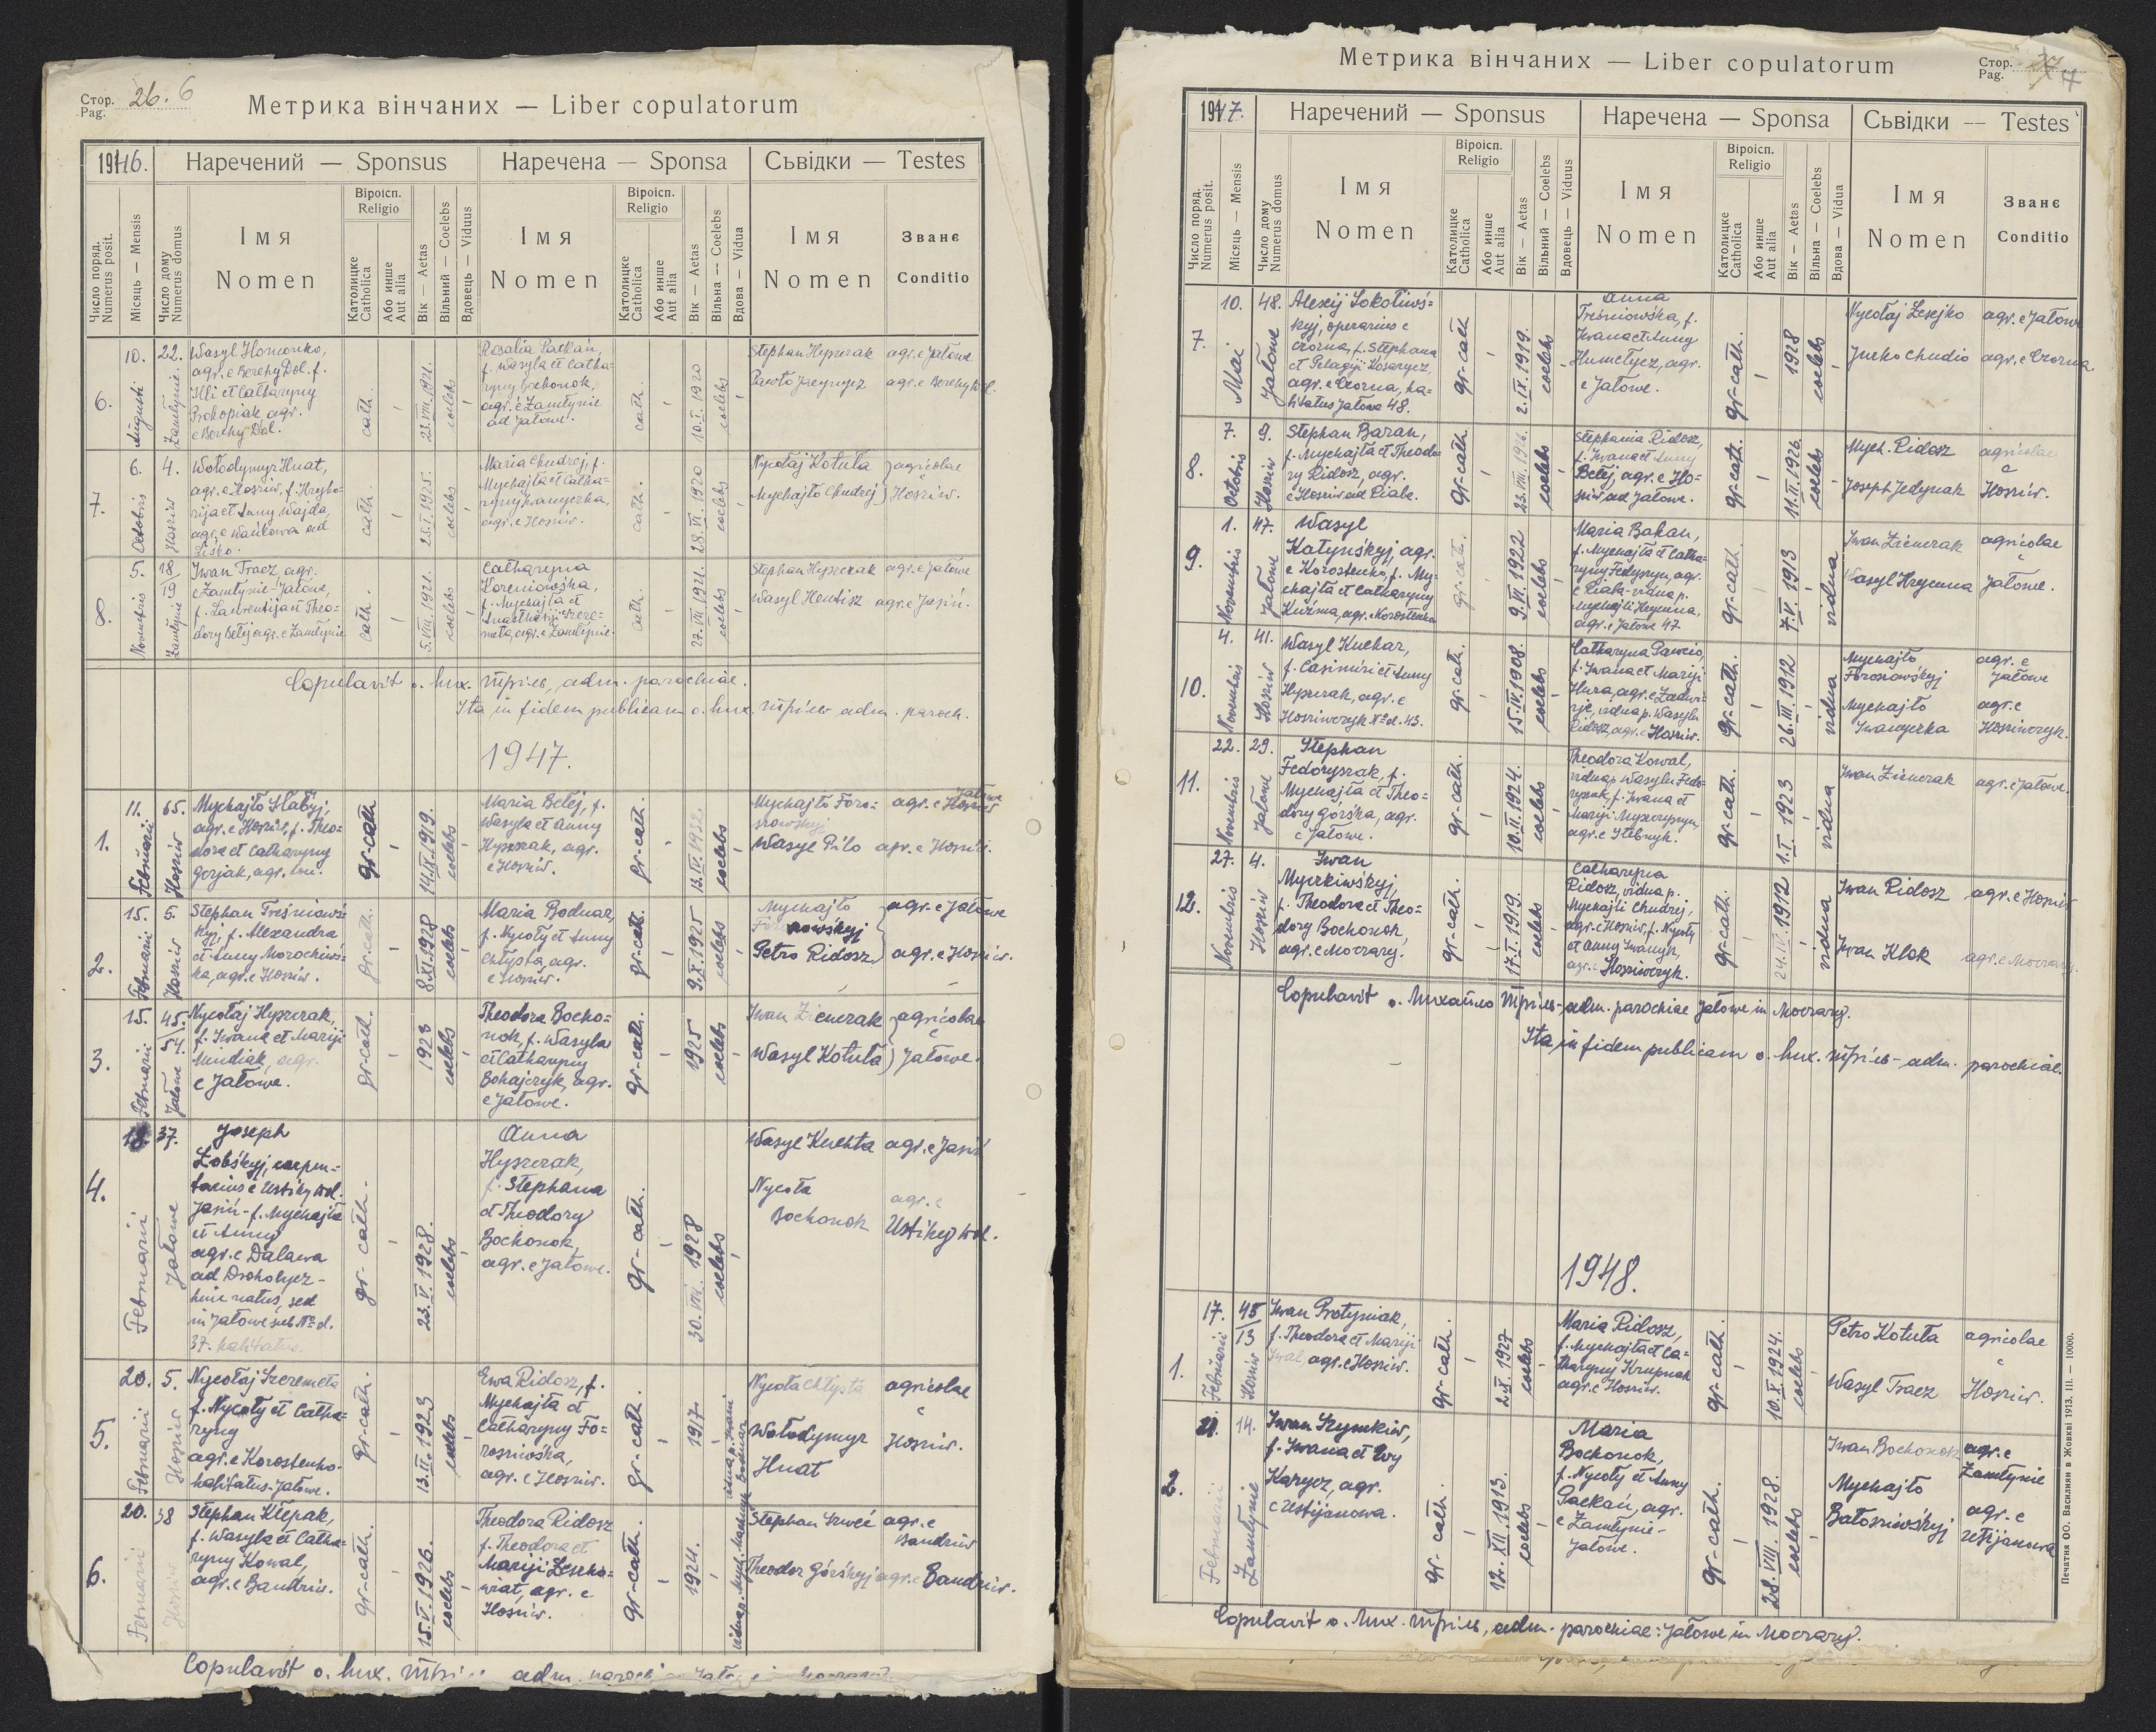 Стор. Pag. 26. 6
Метрика вінчаних — Liber copulatorum
1946.
Наречений — Sponsus
Наречена — Sponsa
Сьвідки — Testes
Число поряд. Numerus posit.
Місяць — Mensis
Число дому Numerus domus
Імя Nomen
Віроісп. Religio
Католицке Catholica
Або инше Aut alia
Вік — Aetas
Вільний — Coelebs
Вдовець — Viduus
Імя Nomen
Віроісп. Religio
Католицке Catholica
Або инше Aut alia
Вік — Aetas
Вільна — Coelebs
Вдова — Vidua
Імя Nomen
Званє Conditio
6.
10. Augusti
22. Zamłynie
Wasyl
agr. e Berehy Dol. f.
Illi et Catharyny
Prokopiak agr.
e Berehy Dol.
cath.
23.VIII.1921.
coelebs
Rosalia Packań,
f. Wasyla et Catha=
ryny Bochonok,
agr. e Zamłynie
ad Jałowe.
cath.
10.I.1920
coelebs
Stephan Hyszczak agr. e Jałowe
Pawło agr. e Berehy Dol.
7.
6. Octobris
4. Hosziw
Wołodymyr Hnat,
agr. e Hosziw, f. Hryho=
rija et Anny Wajda,
agr. e Wańkowa ad
Lisko.
cath.
25.I.1925.
coelebs
Maria Chudzej, f.
Mychajła et Catha=
ryny Iwanyczka,
agr. e Hosziw.
cath.
28.VI.1920
coelebs
Nycołaj Kotuła agricolae
Mychajło Chudzej e Hosziw.
8.
5. Novembris
18/19 Zamłynie
Iwan Tracz, agr.
e Zamłynie-Jałowe,
f. Laurentija et Theo=
dory Bełej agr. e Zamłynie
cath.
5.VIII.1921.
coelebs
Catharyna
Koreniowśka,
f. Mychajła et
Anasthasiji Szere=
meta, agr. e Zamłynie.
cath.
27.III.1921.
coelebs
Stephan Hyszczak agr. e Jałowe
Wasyl Hentisz agr. e Jasiń.
Copulavit o. Мих. adm. parochiae.
Ita in fidem publicam o. Мих. adm. paroch.
1947.
1.
11. Februarii
65. Hosziw
Mychajło Słabyj,
agr. e Hosziw, f. Theo=
dora et Catharyny
Gorjak, agr.
gr-cath.
14.IX.1919.
coelebs
Maria Bełej, f.
Wasyla et Anny
Hyszczak, agr.
e Hosziw.
gr-cath.
13.IV.1932.
coelebs
Mychajło Foro= agr. e Jałowe
Wasyl Pilo agr. e Hosziw.
2.
15. Februarii
5. Hosziw
Stephan Treśniowś=
kyj, f. Alexandra
et Anny Morochiwś=
ka, agr. e Hosziw.
gr-cath.
8.XI.1928
coelebs
Maria Bodnar,
f. Nycoły et Anny
Chłysta, agr.
e Hosziw.
gr-cath.
9.X.1925
coelebs
Mychajło agr. e Jałowe
Petro Ridosz agr. e Hosziw.
3.
15. Februarii
45. 54. Jałowe
Nycołaj Hyszczak,
f. Iwana et Mariji
Mindiak, agr.
e Jałowe.
gr-cath.
1923
coelebs
Theodora Bocho=
nok, f. Wasyla
et Catharyny
Bohajczyk, agr.
e Jałowe.
gr-cath.
1925
coelebs
Iwan Zienczak agricolae
Wasyl Kotuła e Jałowe.
4.
18. Februarii
37. Jałowe
Joseph
Łobśkyj, carpen=
tarius e Ustiky wol.
Jasiń - f. Mychajła
et Anny
agr. e Dalawa
ad Drohobycz -
huic natus, sed
in Jałowe sub № d.
37. habitatus.
gr-cath.
23.V.1928.
coelebs
Anna
Hyszczak,
f. Stephana
et Theodory
Bochonok,
agr. e Jałowe.
gr-cath.
30.VIII.1928
coelebs
Wasyl Kuchta agr. e Jasiń
Nycoła agr. e
Bochonok Ustiky wol.
5.
20. Februarii
5. Hosziw
Nycołaj Szeremeta
f. Nycoły et Catha=
ryny
agr. e Korostenko.
habitatus-Jałowe.
gr-cath.
13.II.1923
coelebs
Ewa Ridosz, f.
Mychajła et
Catharyny Fo=
rosziwśka,
agr. e Hosziw.
gr-cath.
1917.
Nycoła Chłysta agricolae
Wołodymyr e Hosziw.
Hnat
6.
20. Februarii
38 Hosziw
Stephan Klepak,
f. Wasyla et Catha=
ryny Kowal,
agr. e Bandriw.
gr-cath.
15.V.1926.
coelebs
Theodora Ridosz
f. Theodora et
Mariji
agr. e
Hosziw.
gr-cath.
1924.
Stephan Szweć agr. e Bandriw
Theodor Górśkyj agr. e Bandriw.
Copulavit o. Мих. adm.
Метрика вінчаних — Liber copulatorum
Стор. Pag. 27 7
1947.
Наречений — Sponsus
Наречена — Sponsa
Сьвідки — Testes
Число поряд. Numerus posit.
Місяць — Mensis
Число дому Numerus domus
Імя Nomen
Віроісп. Religio
Католицке Catholica
Або инше Aut alia
Вік — Aetas
Вільний — Coelebs
Вдовець — Viduus
Імя Nomen
Віроісп. Religio
Католицке Catholica
Або инше Aut alia
Вік — Aetas
Вільна — Coelebs
Вдова — Vidua
Імя Nomen
Званє Conditio
7.
10. Mai
48. Jałowe
Alexij Sokołiwś=
kyj, operarius e
Czorna, f. Stephana
et Pelagiji Kosarycz,
agr. e Czorna, ha=
bitatus Jałowe 48.
gr-cath
2.IX.1919.
coelebs
Anna
Treśniowśka, f.
Iwana et Anny
Humełycz, agr.
e Jałowe.
gr-cath.
1928
coelebs
Nycołaj Łesejko agr. e Jałowe
Jurko Chudio agr. e Czorna.
8.
7. Octobris
9. Hosziw
Stephan Baran,
f. Mychajła et Theodo=
ry Ridosz, agr.
e Hosziw ad Rabe.
gr-cath.
23.VIII.1926.
coelebs
Stephania Ridosz,
f. Iwana et Anny
Bełej, agr. e Ho=
sziw ad Jałowe.
gr-cath.
11.II.1926.
coelebs
Mych. Ridosz agricolae
Joseph Jedynak e Hosziw.
9.
1. Novembris
47. Jałowe
Wasyl
Katynśkyj, agr.
e Korostenko, f. My=
chajła et Catharyny
Kuźma, agr. e Korostenko
gr-cath.
9.VI.1922
coelebs
Maria Bakan,
f. Mychajła et Catha=
ryny Fedyszyn, agr.
e Rabe - vidua p.
Mychajli Hrycuna,
agr. e Jałowe 47.
gr-cath.
7.V.1913
vidua
Iwan Zienczak agricolae
Wasyl Hrycuna e Jałowe.
10.
4. Novembris
41. Hosziw
Wasyl Kuchar,
f. Casimiri et Anny
Hyszczak, agr. e
Hosziwczyk № d. 43.
gr-cath.
15.IV.1908.
coelebs
Catharyna
f. Iwana et Mariji
Hura, agr. e Zadwi=
rje, vidua p. Wasyla
Ridosz, agr. e Hosziw.
gr-cath.
26.III.1912
vidua
Mychajło agr. e
Forosiwśkyj Jałowe
Mychajło agr. e
Iwanyczka Hosziwczyk.
11.
22. Novembris
29. Jałowe
Stephan
Fedoryszak, f.
Mychajła et Theo=
dory Górśka, agr.
e Jałowe.
gr-cath.
10.II.1924.
coelebs
Theodora Kowal,
vidua p. Wasylu Fedo=
ryszak, f. Iwana et
Mariji
agr. e Stebnyk.
gr-cath.
1.I.1923
vidua
Iwan Zienczak agr. e Jałowe.
12.
27. Novembris
4. Hosziw
Iwan
Myczkiwśkyj,
f. Theodora et Theo=
dory Bochonok,
agr. e Moczary.
gr-cath.
17.I.1919.
coelebs
Catharyna
Ridosz, vidua p.
Mychajli Chudzej,
agr. e Hosziw, f. Nycoły
et Anny Iwanyk,
agr. e Hosziwczyk.
gr-cath.
24.IV.1912
vidua
Iwan Ridosz agr. e Hosziw
Iwan Klok agr. e Moczary.
Copulavit o. Михайло adm. parochiae Jałowe in Moczary.
Ita in fidem publicam o. Мих. adm. parochiae.
1948.
1.
17. Februarii
45/13 Hosziw
Iwan Protyniak,
f. Theodora et Mariji
agr. e Hosziw.
gr-cath.
2.X.1927
coelebs
Maria Ridosz,
f. Mychajła et Ca=
tharyny Krupnak
agr. e Hosziw.
gr-cath.
10.X.1924.
coelebs
Petro Kotuła agricolae
Wasyl Tracz e Hosziw.
2.
21. Februarii
14. Zamłynie
Iwan Szymkiw,
f. Iwana et Ewy
Karycz, agr.
e Ustijanowa.
gr-cath.
12.XII.1913.
coelebs
Maria
Bochonok,
f. Nycoły et Anny
Packań, agr.
e Zamłynie-
Jałowe.
gr-cath.
28.VIII.1928.
coelebs
Iwan Bochonok agr. e Zamłynie
Mychajło agr. e
Batosziwśkyj Ustijanowa
Copulavit o. Мих. adm. parochiae: Jałowe in Moczary.
Печатня ОО. Василиян в Жовкві 1913. III. — 10000.